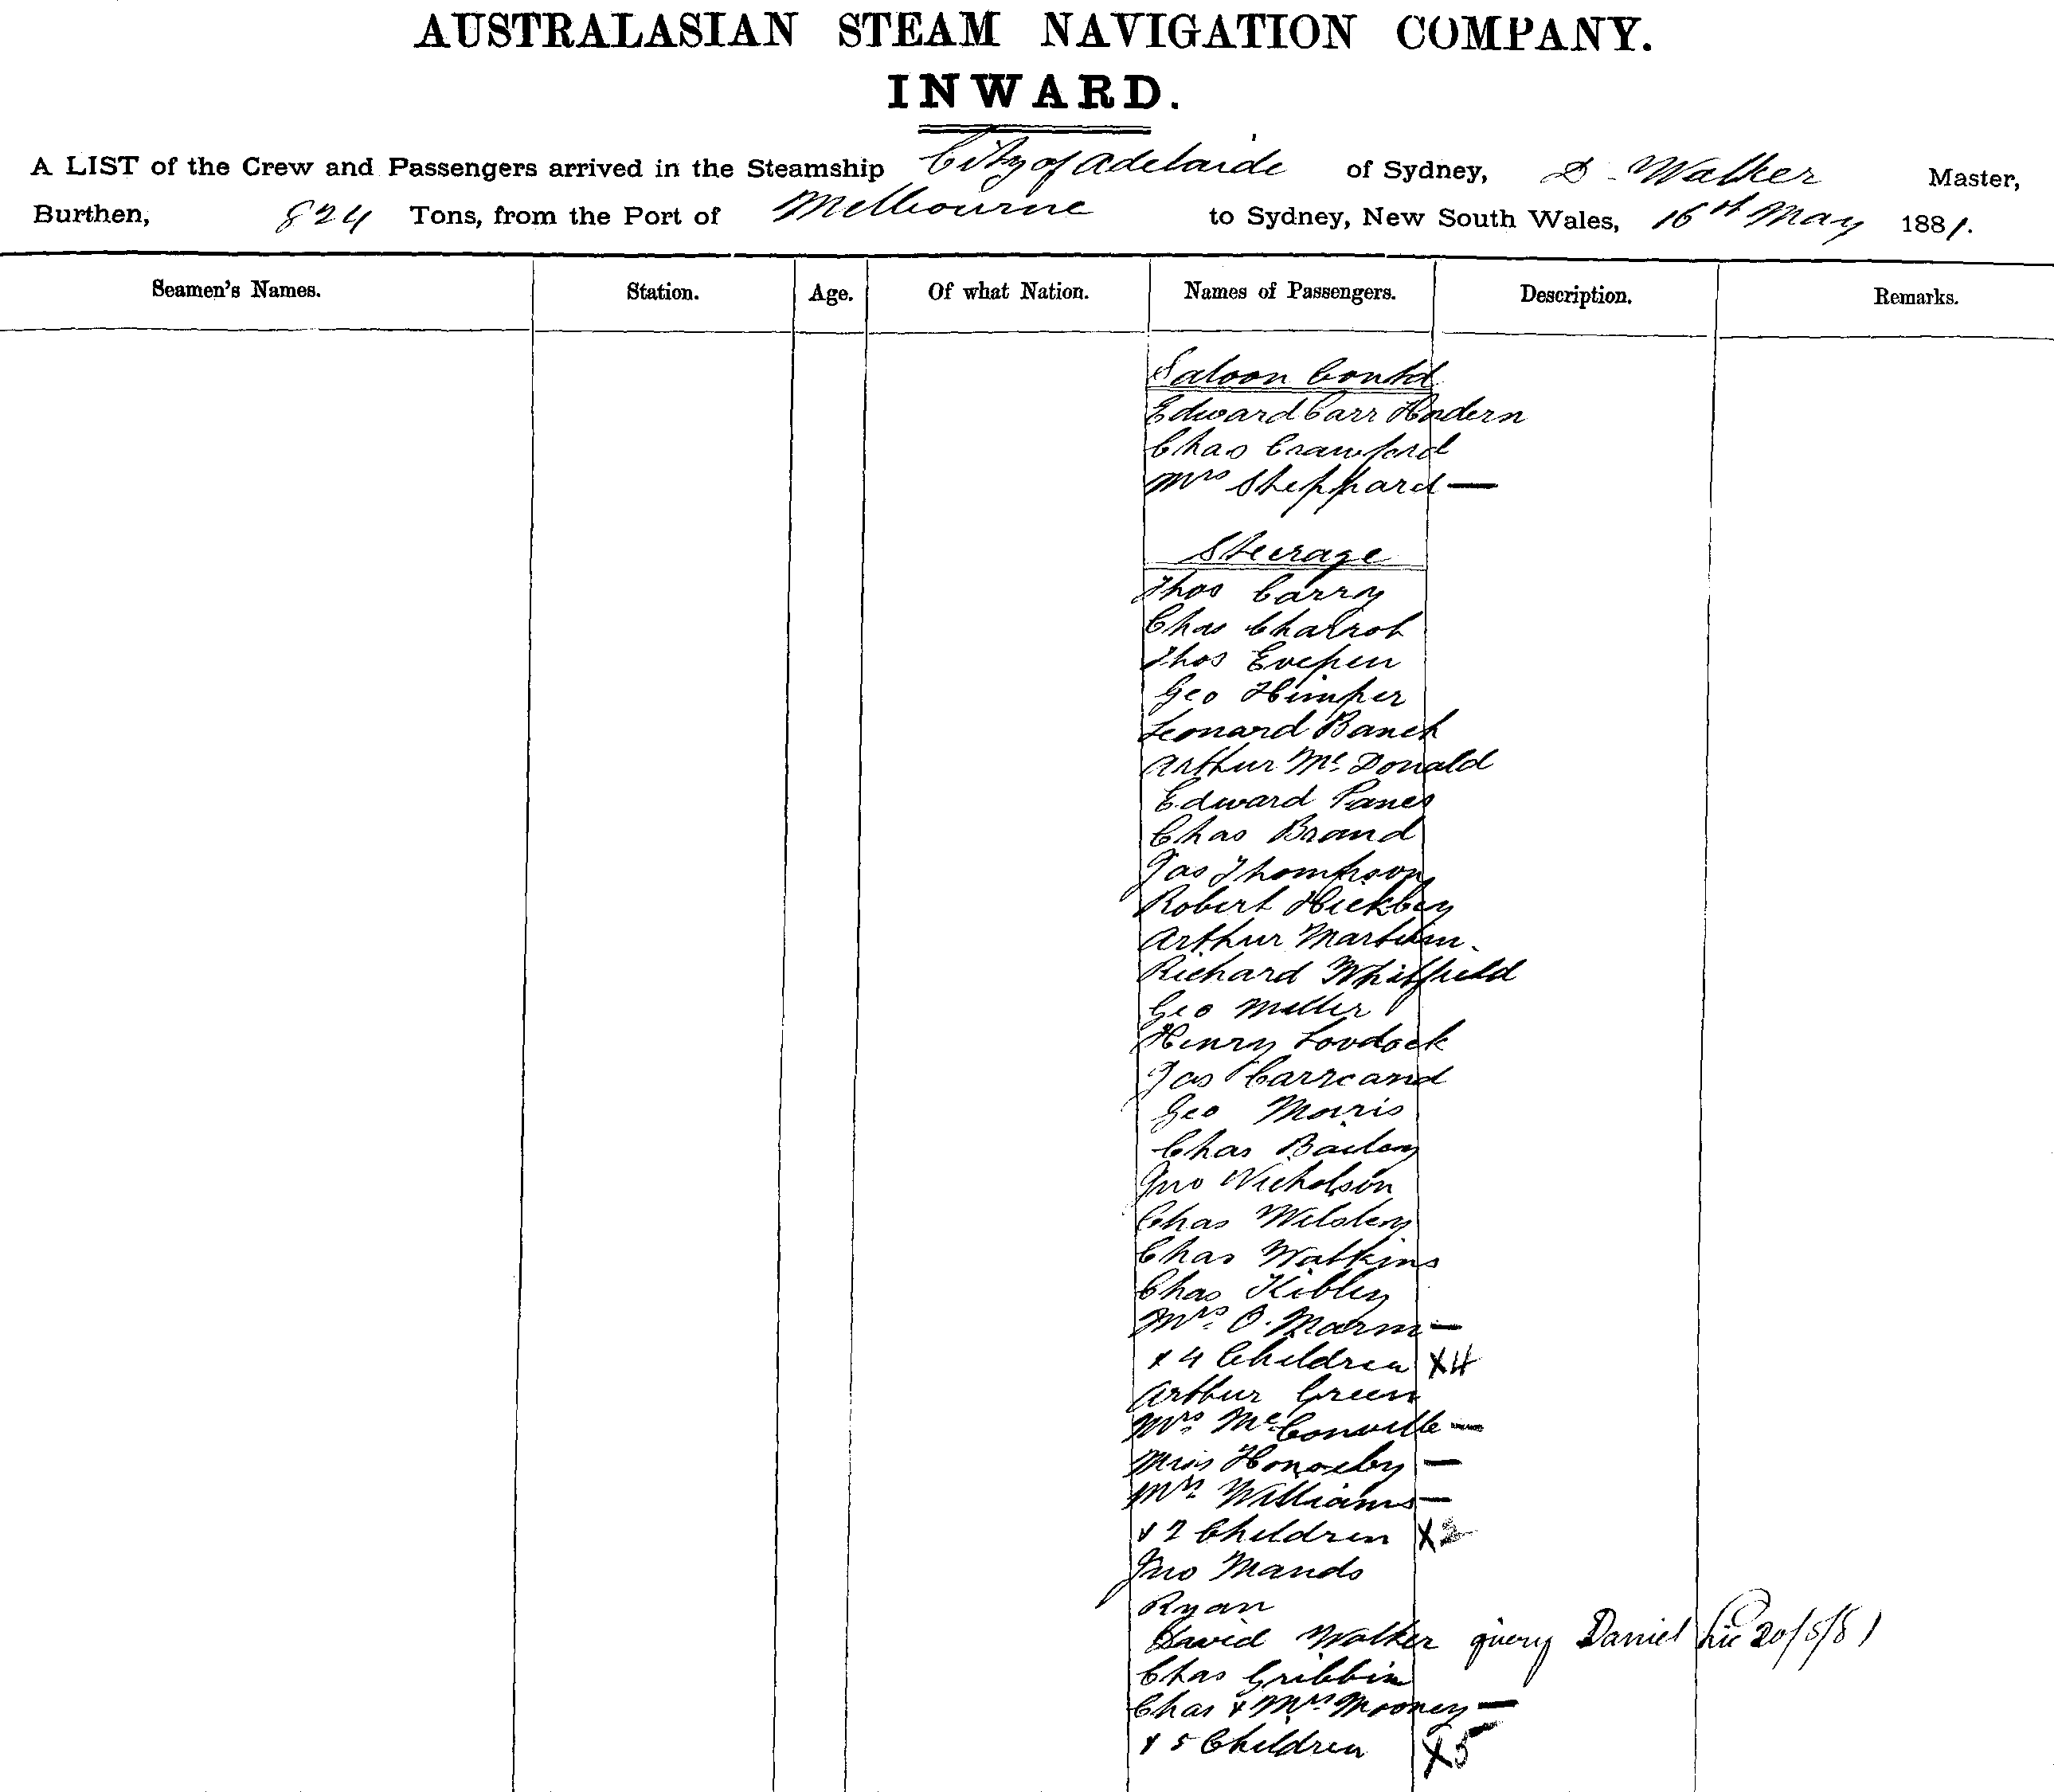 AUSTRALASIAN STEAM NAVIGATION COMPANY.
INWARD.
A LIST of the Crew and Passengers arrived in the Steamship City of Adelaide of Sydney, D. Walker Master,
Burthen, 824 Tons, from the Port of Melbourne to Sydney, New South Wales, 16th May 1881.
Seamen's Names. Station. Age. Of what Nation. Names of Passengers. Description. Remarks.
Saloon Contd
Edward Carr Hordern
Chas Crawford
Mrs Sheppard —
Steerage
Thos Carry
Chas
Thos
Geo Himper
Leonard
Arthur Mc Donald
Edward Panes
Chas Brand
Jas Thompson
Robert Hickbey
Arthur
Richard Whitfield
Geo Miller
Henry Lovdock
Jas Carrcand
Geo Morris
Chas Bailey
Jno Nicholson
Chas
Chas Watkins
Chas Kibley
Mrs O. —
+ 4 Children X4
Arthur Green
Mrs McConville —
Miss —
Mrs Williams —
+ 2 Children X2
Jno Mands
Ryan
David Walker query Daniel 20/5/81
Chas Gribbin
Chas + Mrs Mooney —
+ 5 Children X5